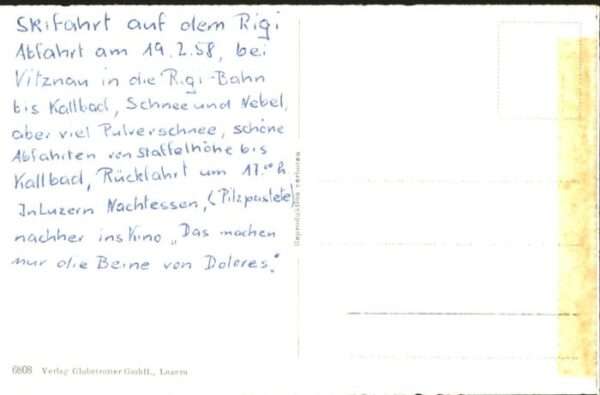 Skifahrt auf dem Rigi
Abfahrt am 19.2.58, bei
Vitznau in die Rigi-Bahn
bis Kaltbad, Schnee und Nebel,
aber viel Pulverschnee, schöne
Abfahrten von Staffelhöhe bis
Kaltbad, Rückfahrt um 17.00 h.
In Luzern Nachtessen, (Pilzpastete)
nachher ins Kino „Das machen
nur die Beine von Dolores."
Reproduction verboten
6808 Verlag Globetrotter GmbH., Luzern